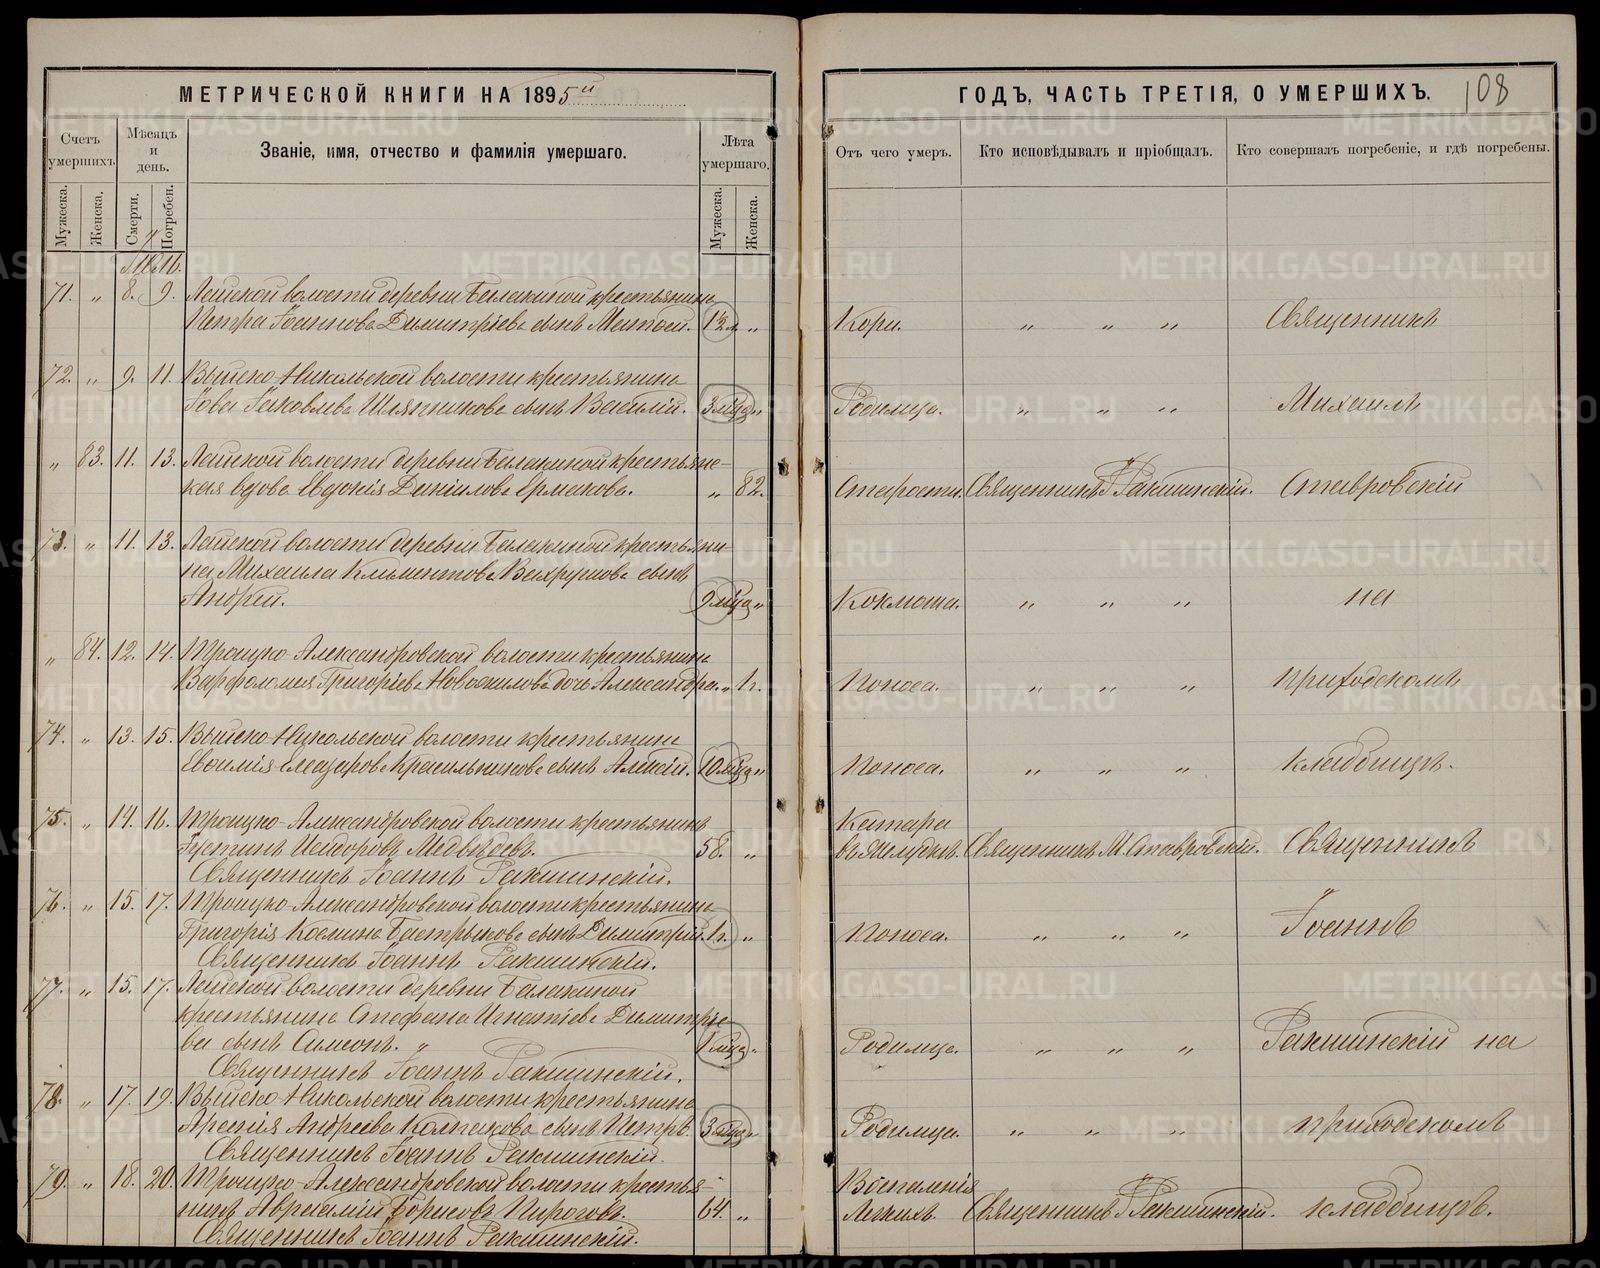 МЕТРИЧЕСКОЙ КНИГИ НА 1895й
ГОДЪ, ЧАСТЬ ТРЕТІЯ, О УМЕРШИХЪ. 108
Счетъ умершихъ.
Мѣсяцъ и день.
Званіе, имя, отчество и фамилія умершаго.
Лѣта умершаго.
Отъ чего умеръ.
Кто исповѣдывалъ и пріобщалъ.
Кто совершалъ погребеніе, и гдѣ погребены.
Мужеска. Женска. Смерти. Погребен. Мужеска. Женска.
71. „ 8. 9. Лайской волости деревни Балакиной крестьянина
Петра Іоаннова Димитріева сынъ Матѳей. 1½ „ Кори. „ „ „ Священникъ
72. „ 9. 11. Выйско-Никольской волости крестьянина
Іова Іаковлева Шляпникова сынъ Василій. 3 мѣца „ Родимца. „ „ „ Михаилъ
„ 83. 11. 13. Лайской волости деревни Балакиной крестьянс-
кая вдова Евдокія Даніилова Ермакова. „ 82. Старости. Священникъ І Ракшинскій. Ставровскій
73. „ 11. 13. Лайской волости деревни Балакиной крестьяни-
на Михаила Климентова Вахрушова сынъ
Андрей. 9 мѣца „ Коклюша. „ „ „ на
„ 84. 12. 14. Троицко-Александровской волости крестьянина
Варѳоломея Григоріева Новоселова дочь Александра. „ 1г. Поноса. „ „ „ приходскомъ
74. „ 13. 15. Выйско-Никольской волости крестьянина
Евѳимія Елеазарова Красильникова сынъ Алексій. 10 мѣца „ Поноса. „ „ „ кладбищѣ.
75. „ 14. 16. Троицко-Александровской волости крестьянинъ
Іустинъ Исидоровъ Медвѣдевъ. 58. „
Катара
въ желудкѣ. Священникъ М Ставровскій. Священникъ
Священникъ Іоаннъ Ракшинскій.
76. „ 15. 17. Троицко-Александровской волости крестьянина
Григорія Космина Бастрыкова сынъ Димитрій. 1г. „ Поноса. „ „ „ Іоаннъ
Священникъ Іоаннъ Ракшинскій.
77. „ 15. 17. Лайской волости деревни Балакиной
крестьянина Стефана Игнатіева Димитріе-
ва сынъ Симеонъ. „ 1 мѣца „ Родимца. „ „ „ Ракшинскій на
Священникъ Іоаннъ Ракшинскій.
78. „ 17. 19. Выйско-Никольской волости крестьянина
Арсенія Андреева Колпакова сынъ Петръ. 3 мѣца „ Родимца. „ „ „ приходскомъ
Священникъ Іоаннъ Ракшинскій.
79. „ 18. 20. Троицко-Александровской волости крестья-
нинъ Авраамій Борисовъ Пироговъ. 64. „
Воспаленія
Легкихъ. Священникъ І Ракшинскій. кладбищѣ.
Священникъ Іоаннъ Ракшинскій.
METRIKI.GASO-URAL.RU